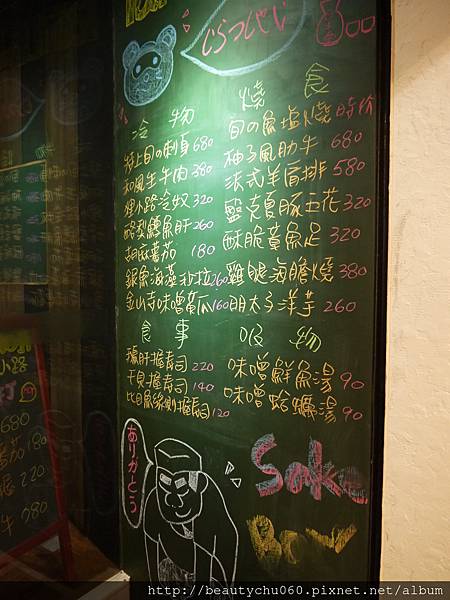 いらっしゃい
冷物
特上旬の刺身 680
和風生牛肉 380
狸小路冷奴 320
酪梨鱈魚肝 260
胡麻蕃茄 180
銀魚海藻沙拉 260
金山寺味噌黃瓜 160
燒食
旬の魚塩燒 時价
柚子風肋牛 680
法式羊肩排 580
鹽克夏豚五花 320
酥脆黃魚足 320
雞腿海膽燒 380
明太子洋芋 260
食事
鵝肝握壽司 220
干貝握壽司 140
比目魚緣側握壽司 120
吸物
味噌鮮魚湯 90
味噌蛤蠣湯 90
ありがとう
Sake
Bar
http://beautychu060.pixnet.net/album